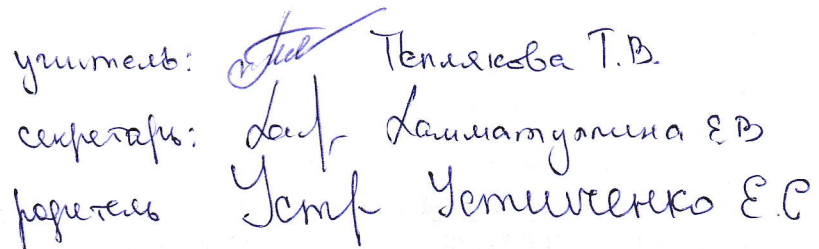 учитель: Теплякова Т.В.
секретарь: Хамматуллина Е В
родитель Устр Устиченко Е.С